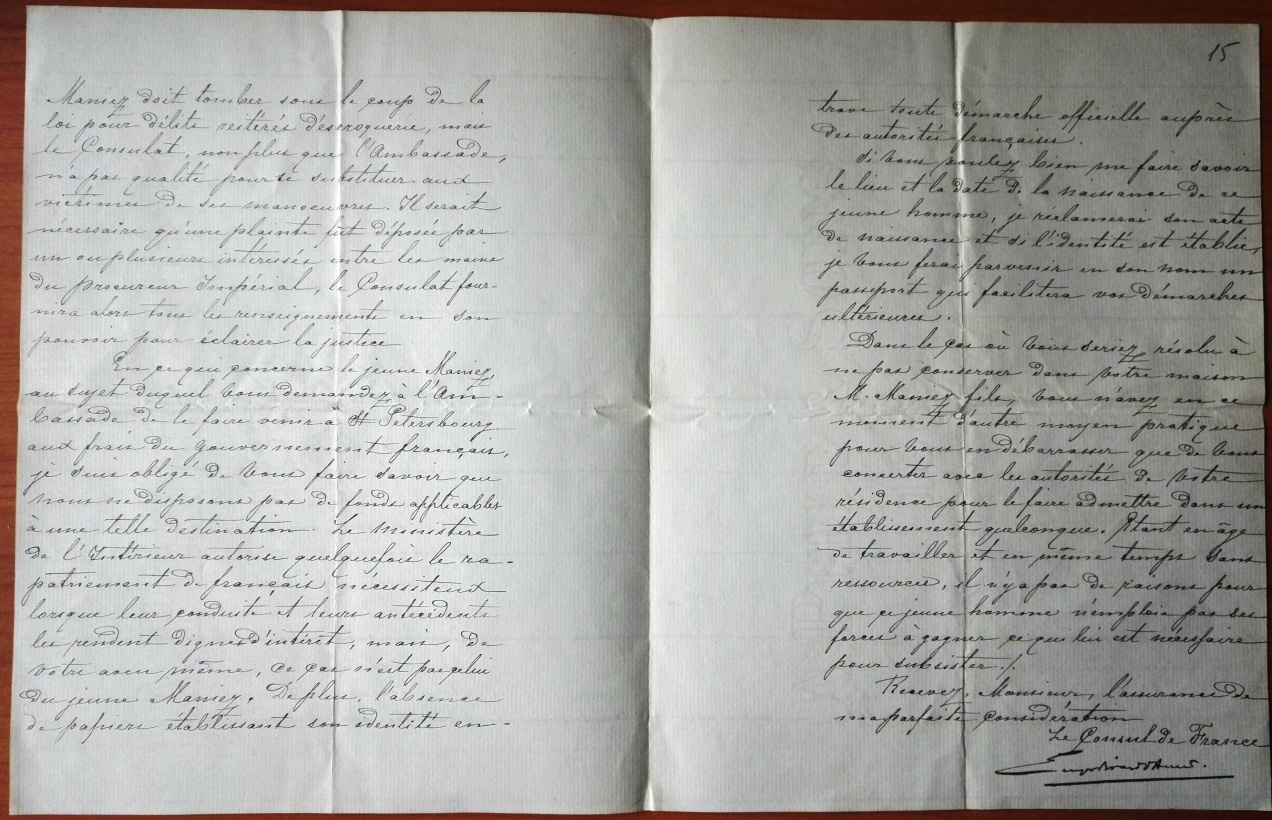 Maniez doit tomber sous le coup de la
loi pour délits réitérés d'escroquerie, mais
le Consulat, non plus que l'Ambassade,
n'a pas qualité pour se substituer aux
victimes de ses manoeuvres. Il serait
nécessaire qu'une plainte fût déposée par
un ou plusieurs intéressés entre les mains
du Procureur Impérial, le Consulat four-
nira alors tous les renseignements en son
pouvoir pour éclairer la justice
En ce qui concerne le jeune Maniez,
au sujet duquel vous demandez à l'Am-
bassade de le faire venir à St Pétersbourg
aux frais du Gouvernement français,
je suis obligé de vous faire savoir que
nous ne disposons pas de fonds applicables
à une telle destination. Le Ministère
de l'Intérieur autorise quelquefois le ra-
patriement de français nécessiteux
lorsque leur conduite et leurs antécédents
les rendent dignes d'intérêt, mais, de
votre aveu même, ce cas n'est pas celui
du jeune Maniez. De plus, l'absence
de papiers établissant son identité en-
15
trave toute démarche officielle auprès
des autorités françaises.
Si vous voulez bien me faire savoir
le lieu et la date de la naissance de ce
jeune homme, je réclamerai son acte
de naissance et si l'identité est établie,
je vous ferai parvenir en son nom un
passeport qui facilitera vos démarches
ultérieures.
Dans le cas où vous seriez résolu à
ne pas conserver dans votre maison
M. Maniez fils, vous n'avez en ce
moment d'autre moyen pratique
pour vous en débarrasser que de vous
concerter avec les autorités de votre
résidence pour le faire admettre dans un
établissement quelconque. Etant en âge
de travailler et en même temps sans
ressources, il n'y a pas de raisons pour
que ce jeune homme n'emploie pas ses
forces à gagner ce qui lui est nécessaire
pour subsister./.
Recevez, Monsieur, l'assurance de
ma parfaite considération
Le Consul de France